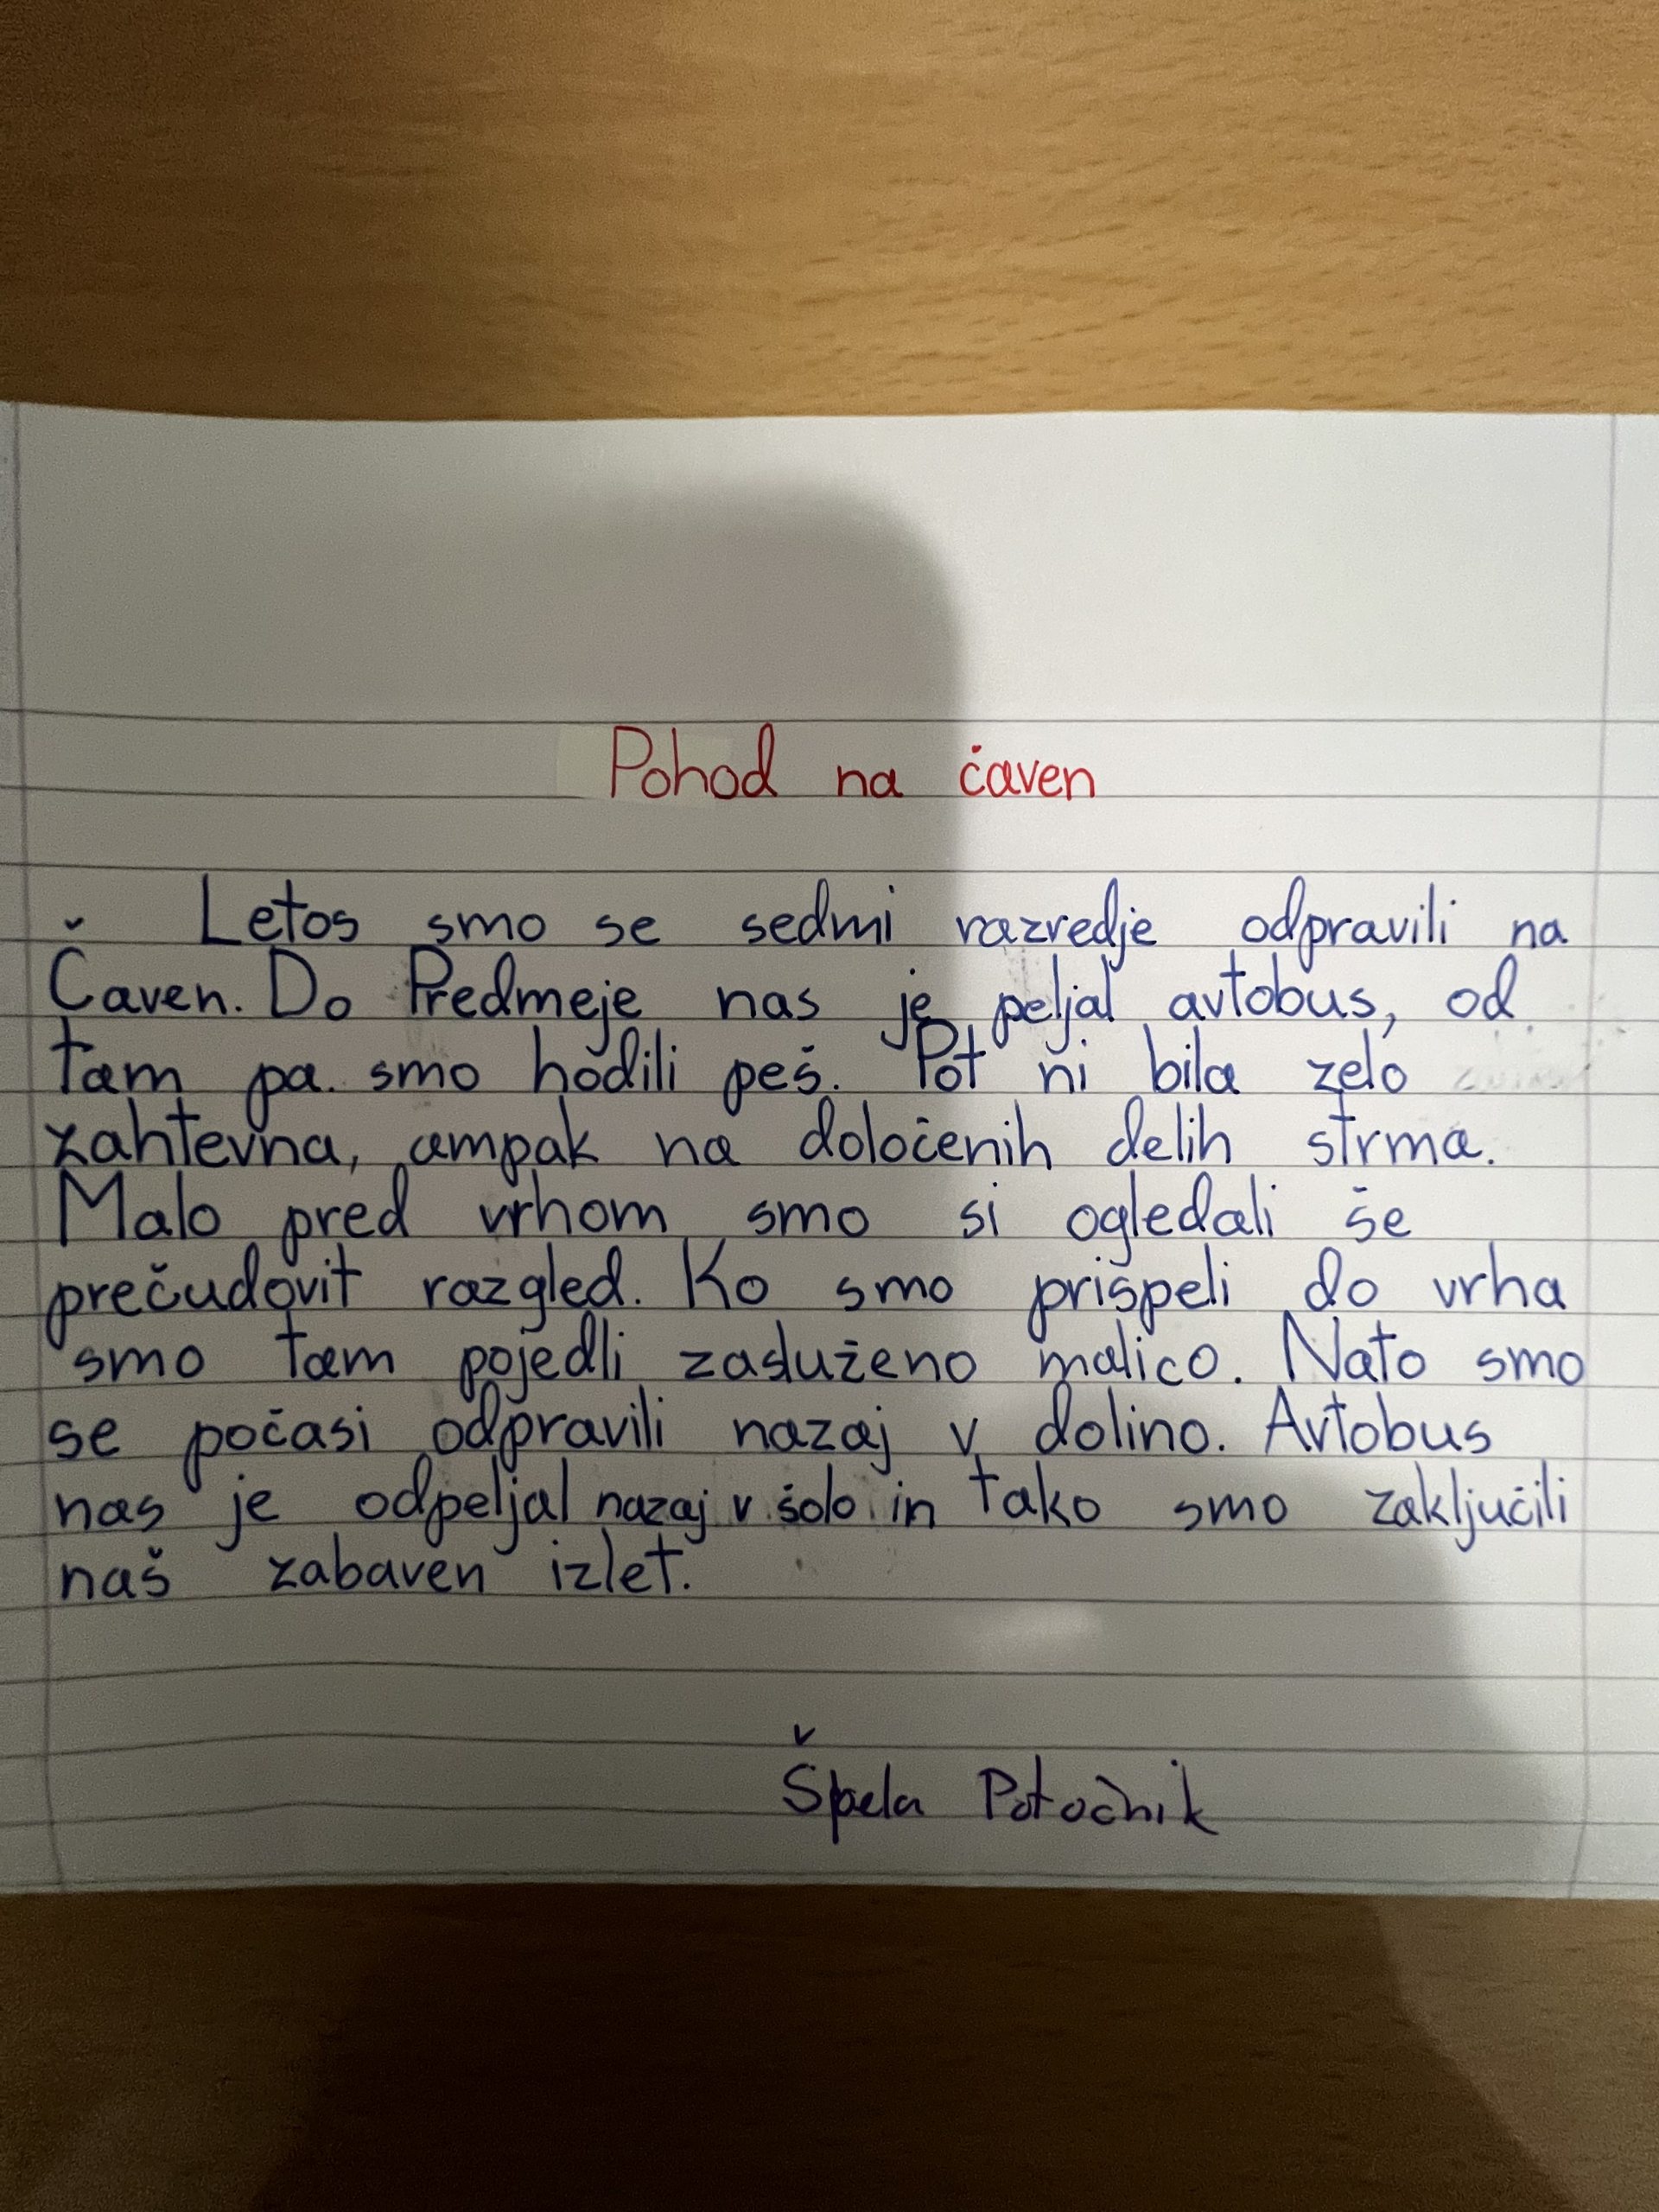 Pohod na čaven
Letos smo se sedmi razredje odpravili na
Čaven. Do Predmeje nas je peljal avtobus, od
tam pa smo hodili peš. Pot ni bila zelo
zahtevna, ampak na določenih delih strma.
Malo pred vrhom smo si ogledali še
prečudovit razgled. Ko smo prispeli do vrha
smo tam pojedli zasluženo malico. Nato smo
se počasi odpravili nazaj v dolino. Avtobus
nas je odpeljal nazaj v šolo in tako smo zaključili
naš zabaven izlet.
Špela Potočnik